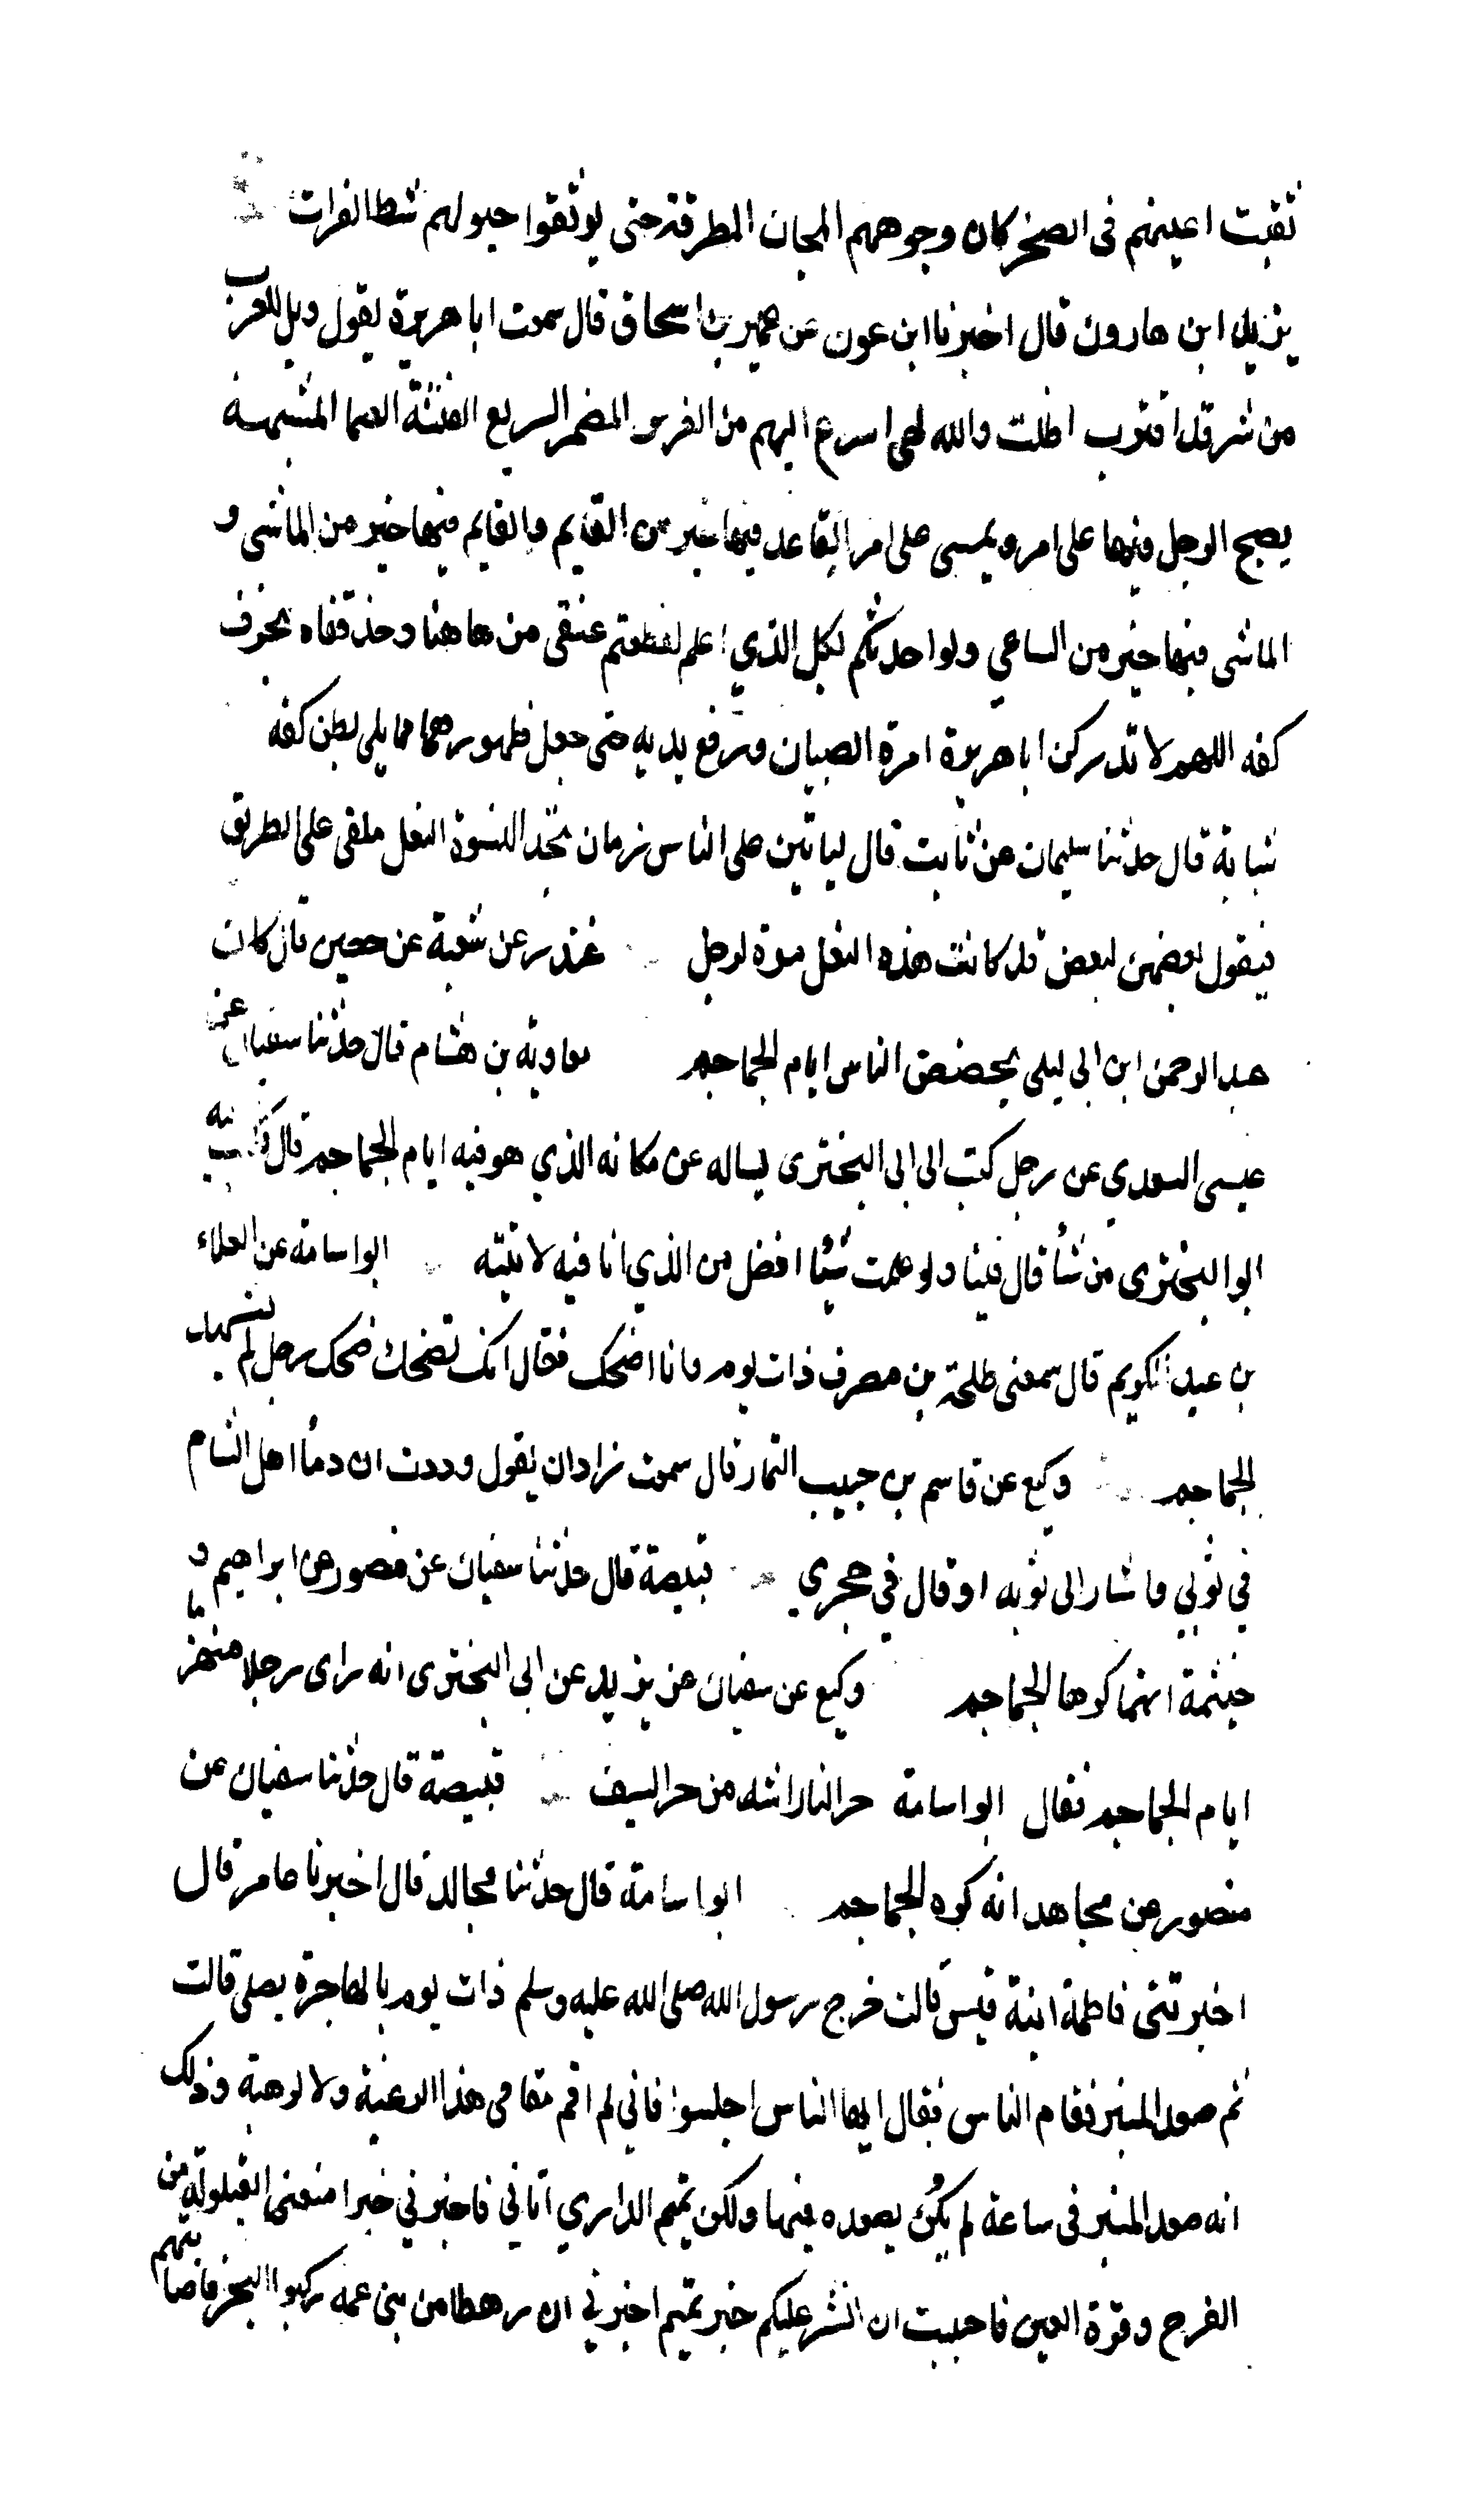 ثقبت اعينهم فى الصخر كان وجوههم المجان المطرقة حتى يوثقوا خيولهم شط الفرات
يزيد ابن هارون قال اخبرنا ابن عون عن عمير بن اسحاق قال سمعت ابا هريرة يقول ويل للعرب
من شر قد اقترب اظلت والله لهى اسرع اليهم من الفرس المضمر السريع الفتنة العميا المشبهة
يصبح الرجل فيها على امر ويمسى على امر القاعد فيها خير من القايم والقايم فيها خير من الماشى و
الماشى فيها خير من الساعي ولو احدثكم لكل الذي اعلم لقطعتم عنقى من هاهنا وحذ قفاه بحرف
كفه اللهم لا تدركن ابا هريرة امرة الصبيان ورفع يديه حتى جعل ظهورهما مما يلي بطن كفه
شبابة قال حدثنا سليمان عن ثابت قال لياتين على الناس زمان تجد النسوة النعل ملقى على الطريق
فيقول بعضهن لبعض قد كانت هذه النعل مرة لرجل غندر عن شعبة عن حصين قال كان
عبد الرحمن ابن ابى ليلى يحضض الناس ايام الجماجم معاوية بن هشام قال حدثنا سفيان عن
عيسى السعدي عن رجل كتب الى ابى البخترى يساله عن مكانه الذي هو فيه ايام الجماجم قال كتب اليه
ابو البخترى من شأ قال فينا ولو علمت شيئا افضل من الذي انا فيه لاتيته ابو اسامة عن العلاء
بن عبد الكريم قال سمعنى طلحة بن مصرف ذات يوم وانا اضحك فقال انك تضحك ضحك رجل لم يشهد
الجماجم وكيع عن قاسم بن حبيب التمار قال سمعت زادان يقول وددت ان دمأ اهل الشام
في ثوبي واشار الى ثوبه او قال في حجري قبيصة قال حدثنا سفيان عن منصور عن ابراهيم و
خيثمة انهما كرها الجماجم وكيع عن سفيان عن يزيد عن ابى البخترى انه راى رجلا منهزما
ايام الجماجم فقال ابو اسامة حر النار اشد من حر السيف قبيصة قال حدثنا سفيان عن
منصور عن مجاهد انه كره الجماجم ابو اسامة قال حدثنا مجالد قال اخبرنا عامر قال
اخبرتنى فاطمة ابنة قيس قالت خرج رسول الله صلى الله عليه وسلم ذات يوم بالهاجرة يصلى قالت
ثم صعد المنبر فقام الناس فقال ايها الناس اجلسوا فاني لم اقم مقامى هذا الرغبة ولا لرهبة وذلك
انه صعد المنبر فى ساعة لم يكن يصعده فيها ولكن تميم الداري اتاني فاخبرني خبرا منعنى القيلولة من
الفرح وقرة العين فاحببت ان انشر عليكم خبر تميم اخبرني ان رهطا من بنى عمه ركبوا البحر فاصابتهم